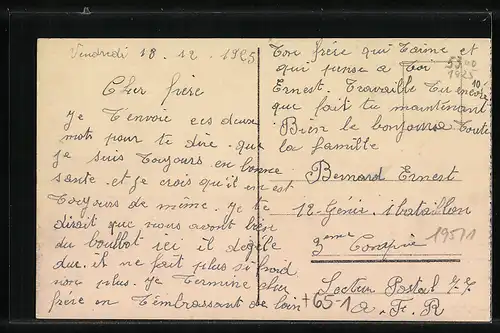 Vendredi 18. 12. 1925
Cher frère
Je t'envoie ces deux
mots pour te dire que
je suis toujours en bonne
sante et je crois qu'il en est
toujours de même. Je te
disait que nous avont bien
du boullot ici il dégèle
dur. il ne fait plus si froid
non plus. Je termine cher
frère en t'embrassant de loin
ton frère qui t'aime et
qui pense a toi
Ernest. Travaille tu encore
que fait tu maintenant
Bien le bonjour a toute
la famille
Bernard Ernest
12 Génie. 1 bataillon
9eme Conpagnie
Secteur Postal 77
A. F. R
19511
+65-1